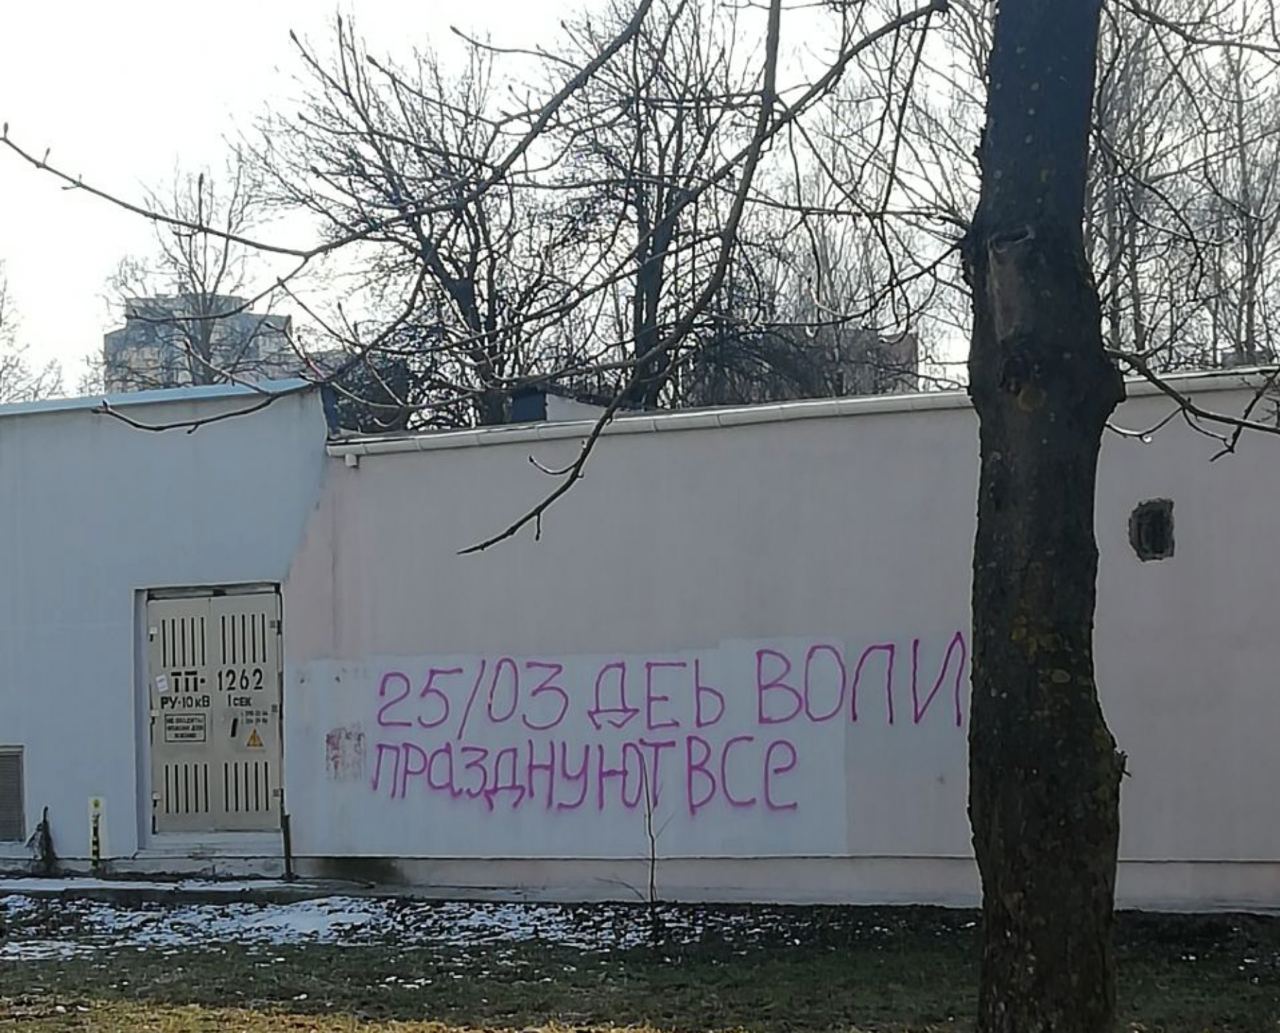 ТП- 1262
РУ-10кВ 1сек
25/03 ДЕЬ ВОЛИ
ПРАЗДНУЮТ ВСЕ